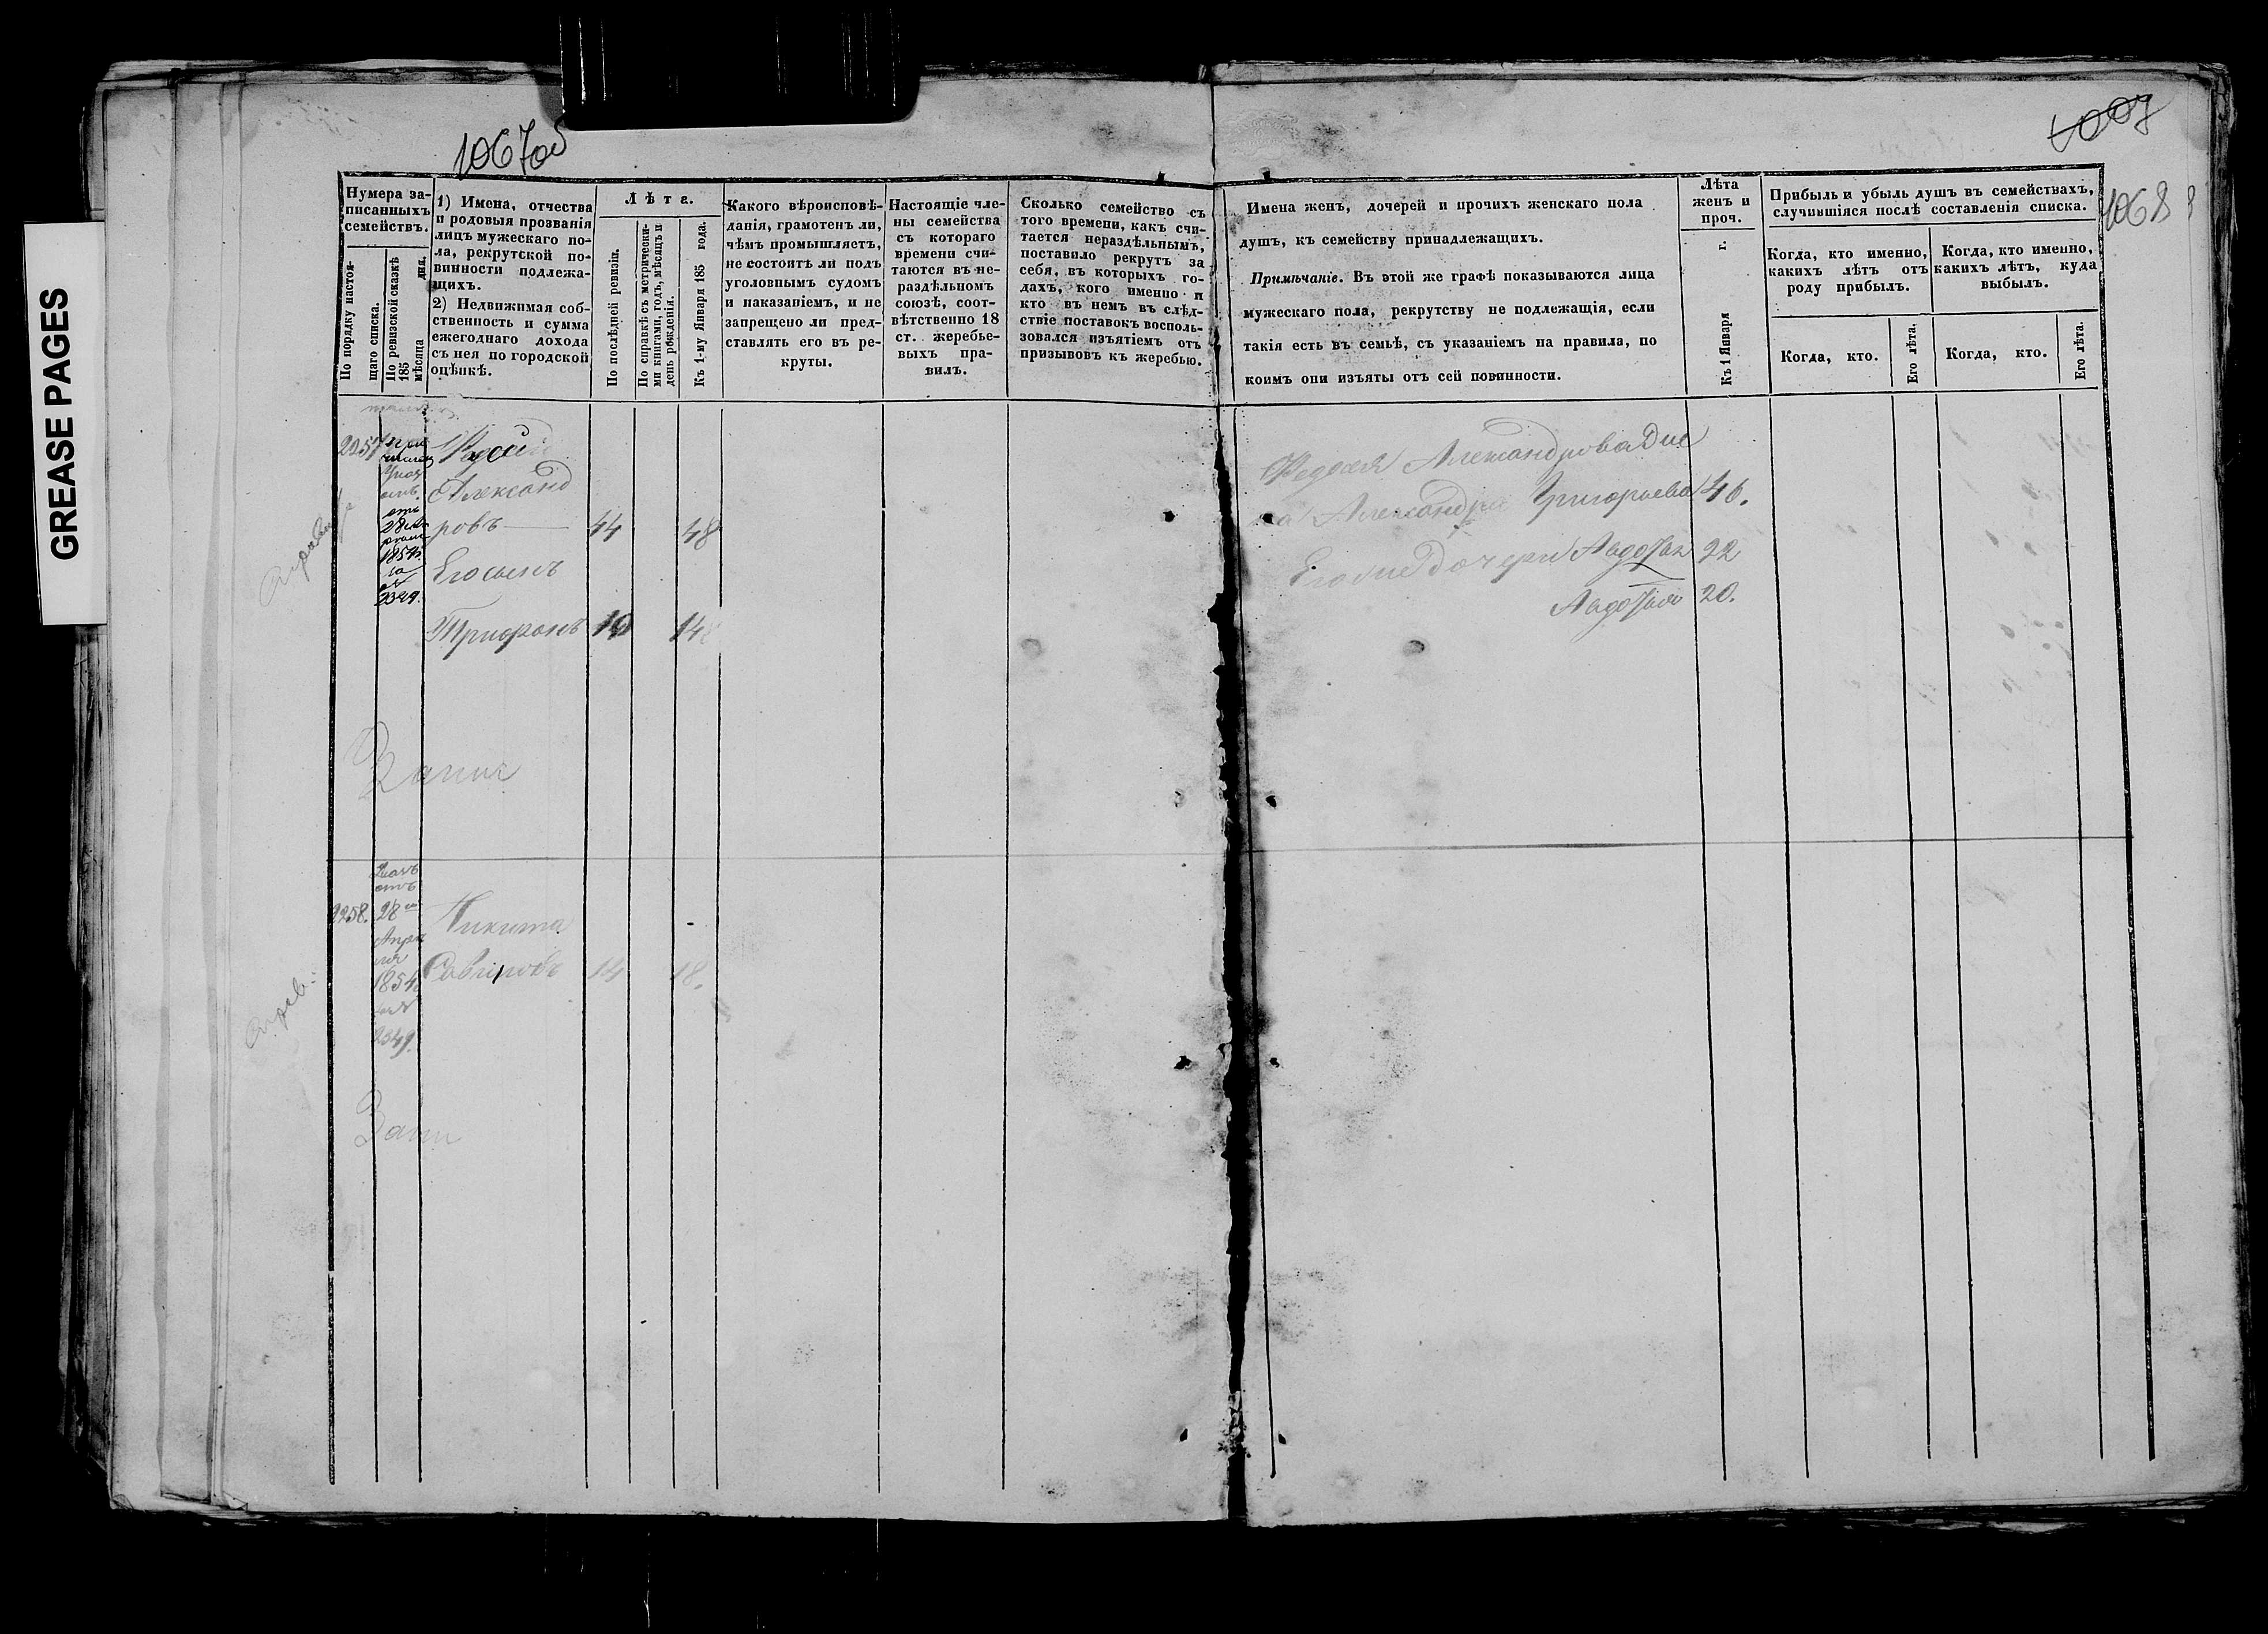 GREASE PAGES
1067об
1007
1068
Нумера за-
писанныхъ
семействъ.
По порядку настоя-
щаго списка.
По ревизской сказкѣ
185 дня,
мѣсяца
1) Имена, отчества
и родовыя прозванія
лицъ мужескаго по-
ла, рекрутской по-
винности подлежа-
щихъ.
2) Недвижимая соб-
ственность и сумма
ежегоднаго дохода
съ нея по городской
оцѣнкѣ.
Лѣта.
По послѣдней ревизіи.
По справкѣ съ метрически-
ми книгами, годъ, мѣсяцъ и
день рожденія.
Къ 1-му Января 185 года.
Какого вѣроисповѣ-
данія, грамотенъ ли,
чѣмъ промышляетъ,
не состоитъ ли подъ
уголовнымъ судомъ
и наказаніемъ, и не
запрещено ли пред-
ставлять его въ ре-
круты.
Настоящіе чле-
ны семейства
съ котораго
времени счи-
таются въ не-
раздѣльномъ
союзѣ, соот-
вѣтственно 18
ст. жеребье-
выхъ пра-
вилъ.
Сколько семейство съ
того времени, какъ счи-
тается нераздѣльнымъ,
поставило рекрутъ за
себя, въ которыхъ го-
дахъ, кого именно и
кто въ немъ въ слѣд-
ствіе поставокъ восполь-
зовался изъятіемъ отъ
призывовъ къ жеребью.
Имена женъ, дочерей и прочихъ женскаго пола
душъ, къ семейству принадлежащихъ.
Примѣчаніе. Въ этой же графѣ показываются лица
мужескаго пола, рекрутству не подлежащія, если
такія есть въ семьѣ, съ указаніемъ на правила, по
коимъ они изъяты отъ сей повинности.
Лѣта
женъ и
проч.
Къ 1 Января г.
Прибыль и убыль душъ въ семействахъ,
случившіяся послѣ составленія списка.
Когда, кто именно,
какихъ лѣтъ отъ
роду прибылъ.
Когда, кто именно,
какихъ лѣтъ, куда
выбылъ.
Когда, кто.
Его лѣта.
Когда, кто.
Его лѣта.
Указ
отъ
28
1854
за
№
2349.
Александ
ровъ 44 48
Его сынъ
Трифонъ 10 14
Александрова
Александра Григорьева 46.
дочери Авдотья 22
Авдотья 20.
2258.
Указъ
отъ
28го
Апрѣ
ля
1854
за №
2349.
Никита
14 18.